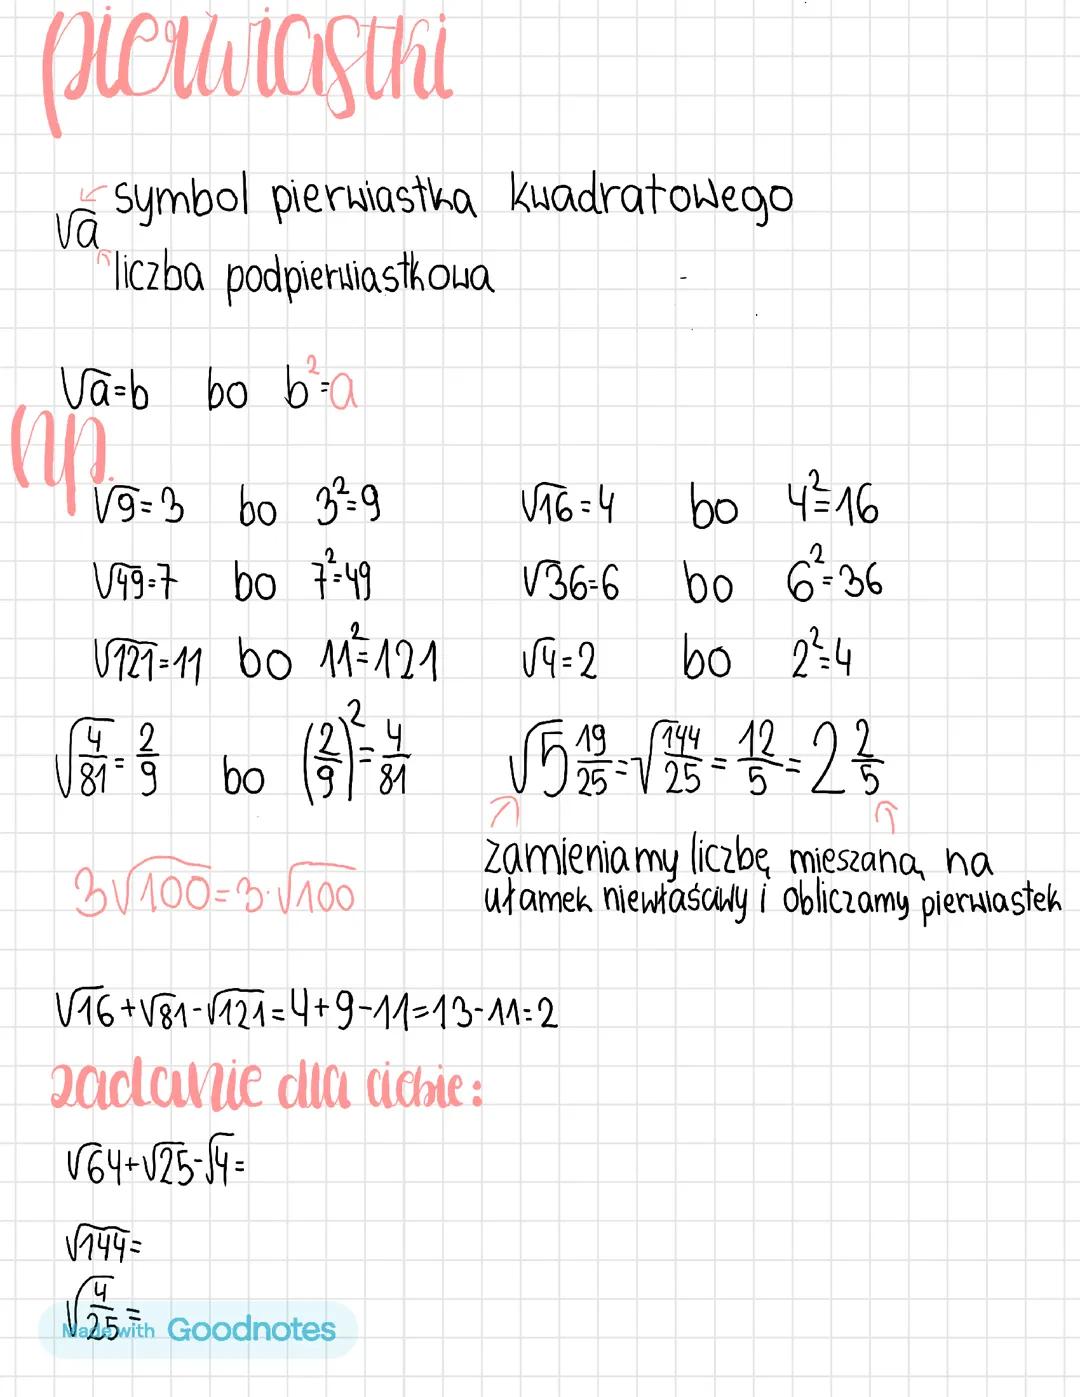 pierwiastki
symbol pierwiastka kwadratowego
√a
liczba podpierwiastkowa
√a=b bo b²=a
np.
√9=3 bo 3²=9 √16=4 bo 4²=16
√49=7 bo 7²=49 √36=6 bo 6²=36
√121=11 bo 11²=121 √4=2 bo 2²=4
√(4/81)=2/9 bo (2/9)²=4/81 √(5 19/25)=√(144/25)=12/5=2 2/5
zamieniamy liczbę mieszaną na
ułamek niewłaściwy i obliczamy pierwiastek
3√100=3·√100
√16+√81-√121=4+9-11=13-11=2
zadanie dla ciebie:
√64+√25-√4=
√144=
√(4/25)=
Made with Goodnotes